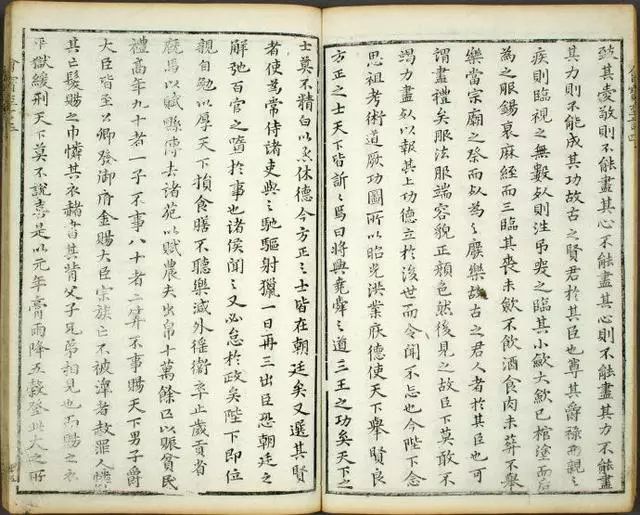 致其愛敬則不能盡其心不能盡其心則不能盡其力不能盡
其力則不能成其功故古之賢君於其臣也尊其爵祿而親之
疾則臨視之無數死則往吊哭之臨其小歛大歛已棺塗而后
為之服錫衰麻絰而三臨其喪未歛不飲酒食肉未葬不舉
樂當宗廟之祭而死為之廢樂故古之君人者於其臣也可
謂盡禮矣服法服端容貌正顏色然後見之故臣下莫敢不
竭力盡死以報其上功德立於後世而令聞不忘也今陛下念
思祖考術追厥功圖所以昭光洪業庥德使天下舉賢良
方正之士天下皆訢訢焉曰將興堯舜之道三王之功矣天下之
士莫不精白以承休德今方正之士皆在朝廷矣又選其賢
者使為常侍諸吏與之馳驅射獵一日再三出臣恐朝廷之
解弛百官之墮於事也諸侯聞之又必怠於政矣陛下即位
親自勉以厚天下損食膳不聽樂減外徭衛卒止歲貢省
廄馬以賦縣傳去諸苑以賦農夫出帛十萬餘匹以賑貧民
禮高年九十者一子不事八十者二筭不事賜天下男子爵
大臣皆至公卿發御府金賜大臣宗族亡不被澤者赦罪人憐
其亡髮賜之巾憐其衣赭書其背父子兄弟相見也而賜之衣
平獄緩刑天下莫不說喜是以元年膏雨降五穀登此天之所